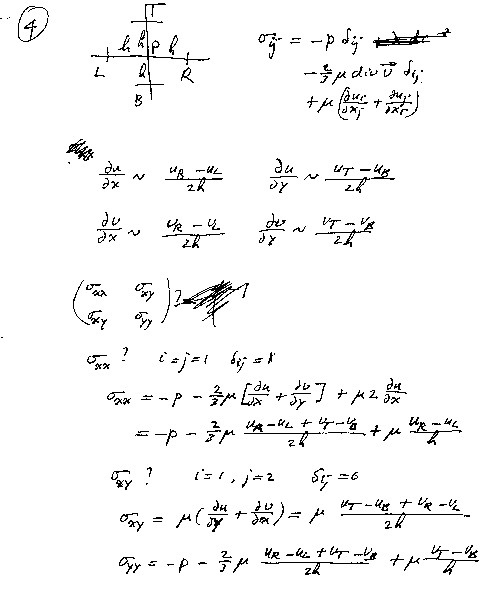 ④
T
h h P h
L h R
B
σij = -p δij
-2/3 μ div v⃗ δij
+ μ(∂ui/∂xj + ∂uj/∂xi)
∂u/∂x ~ (uR - uL)/2h    ∂u/∂y ~ (uT - uB)/2h
∂v/∂x ~ (vR - vL)/2h    ∂v/∂y ~ (vT - vB)/2h
(σxx σxy
σxy σyy) ?
σxx ?    i=j=1    δij = 1
σxx = -p - 2/3 μ [∂u/∂x + ∂v/∂y] + μ 2 ∂u/∂x
= -p - 2/3 μ (uR - uL + vT - vB)/2h + μ (uR - uL)/h
σxy ?    i=1, j=2    δij = 0
σxy = μ(∂u/∂y + ∂v/∂x) = μ (uT - uB + vR - vL)/2h
σyy = -p - 2/3 μ (uR - uL + vT - vB)/2h + μ (vT - vB)/h